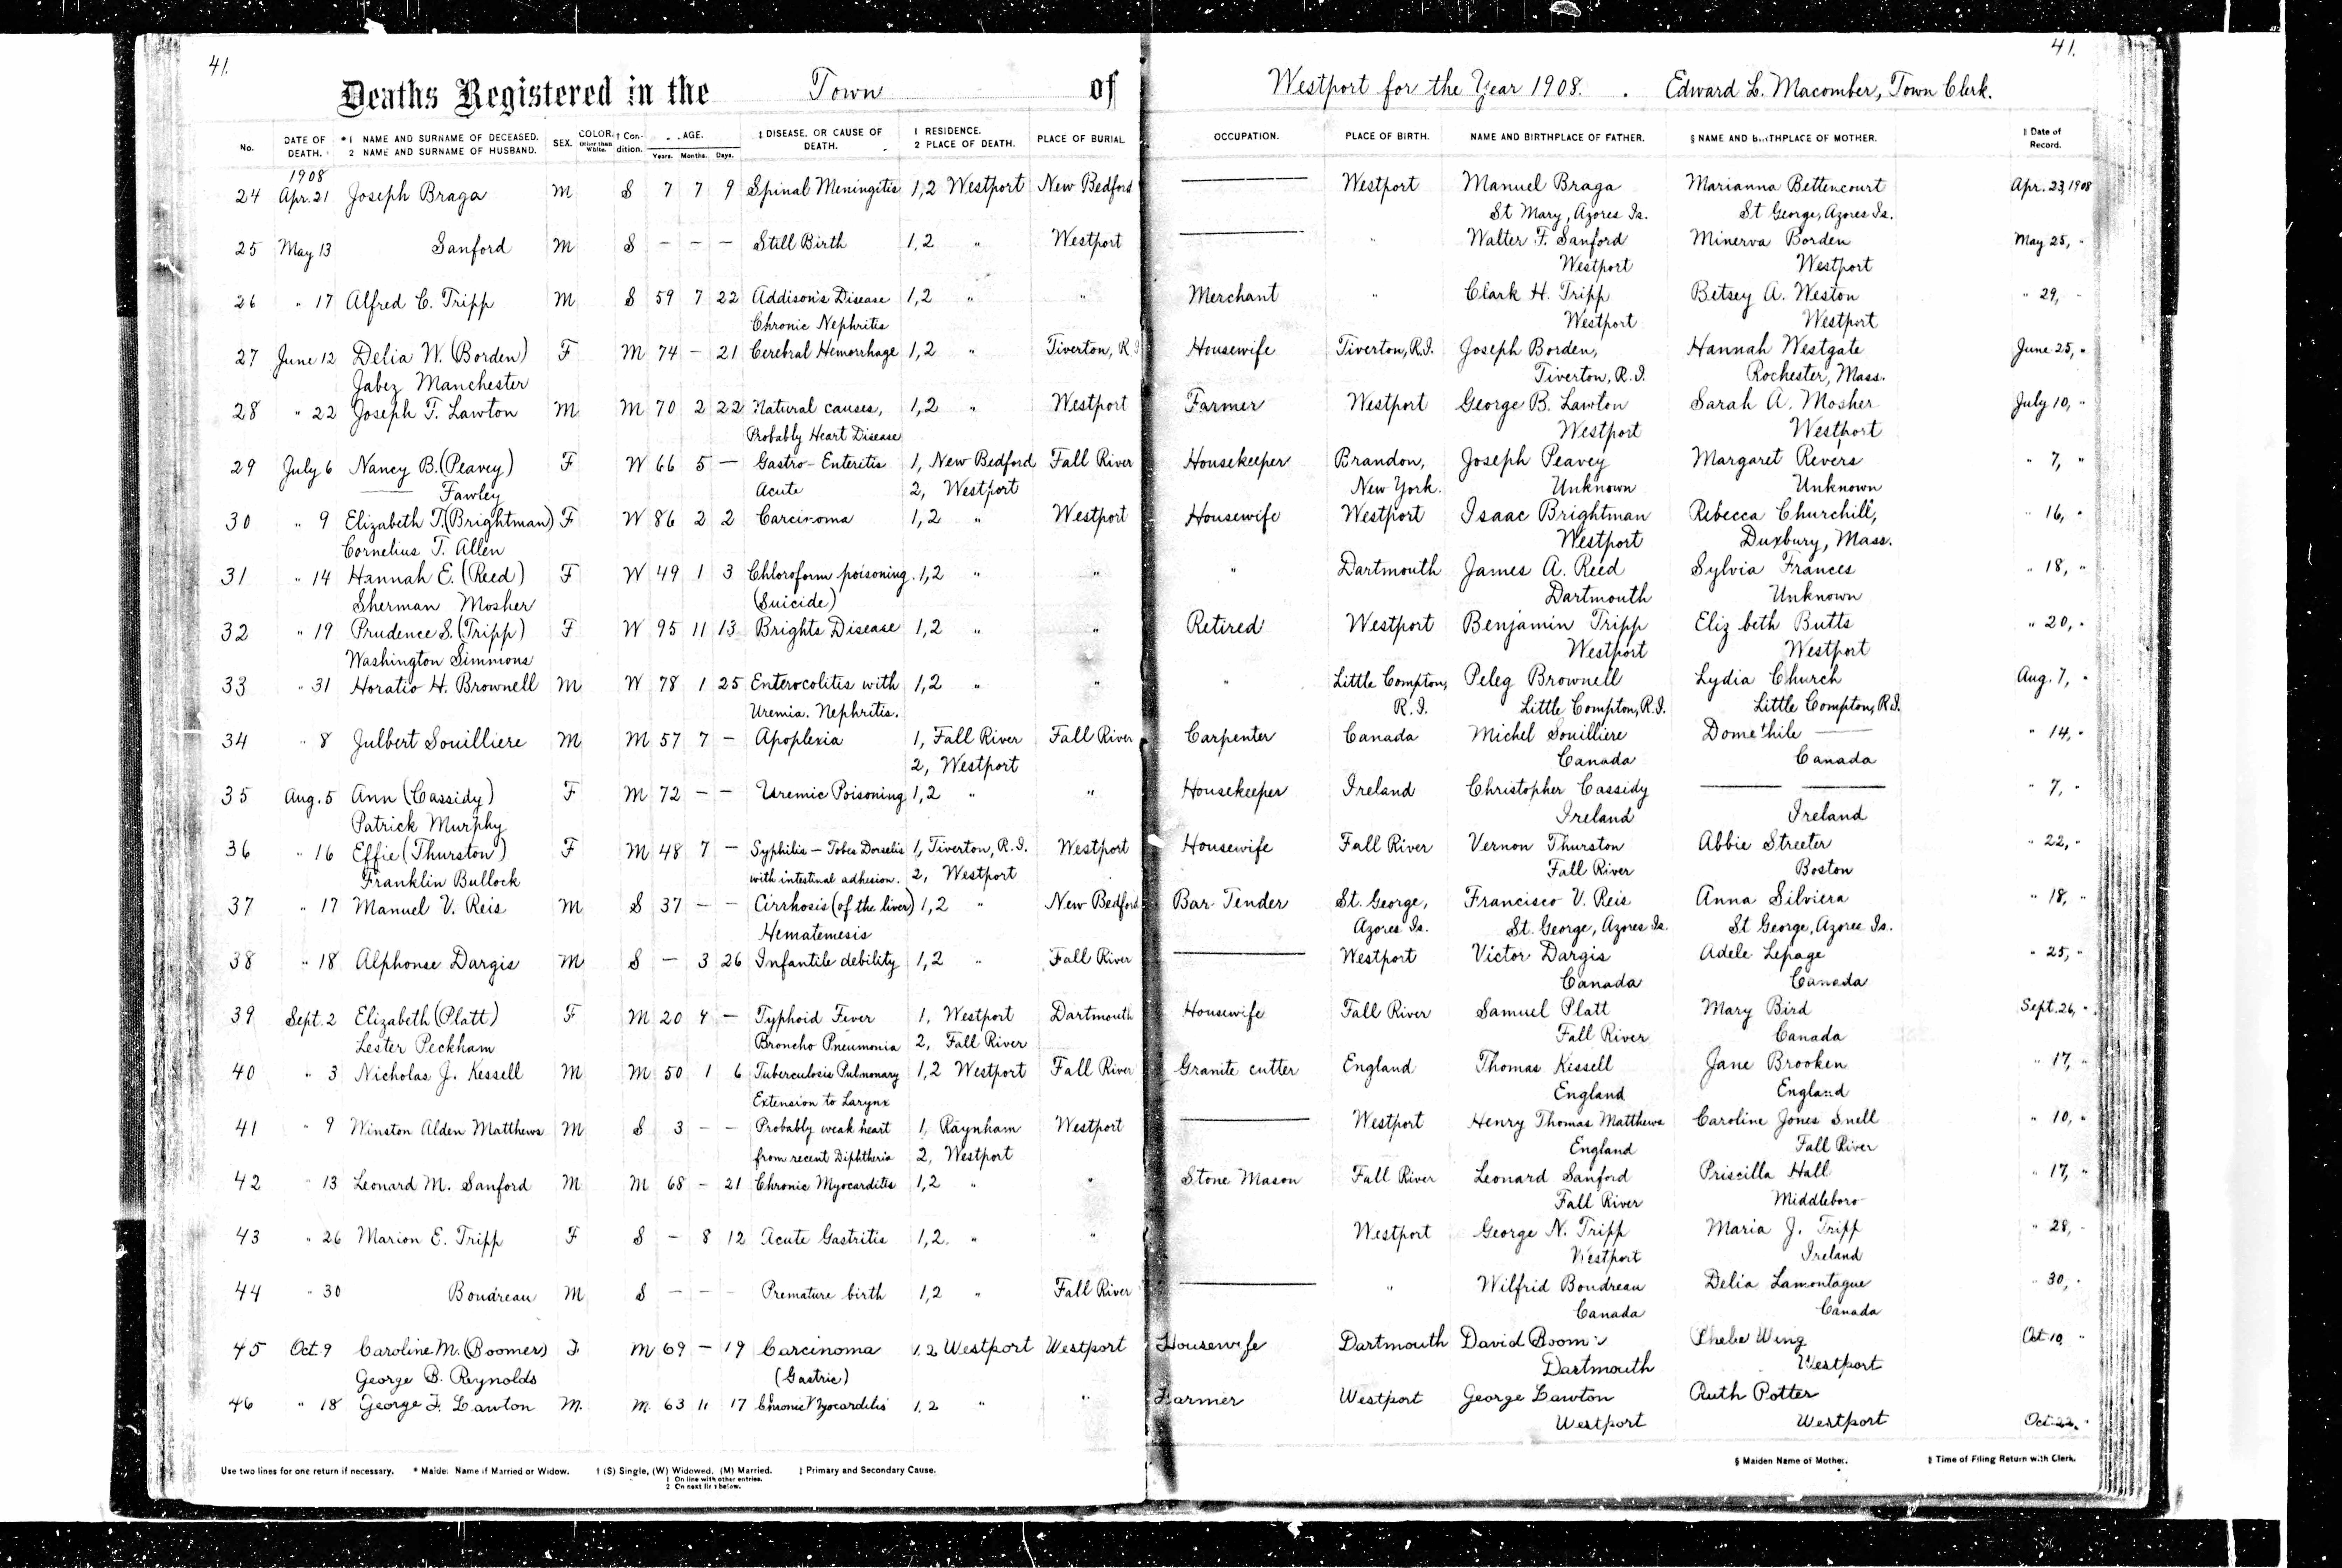 41.
41.
Deaths Registered in the Town of Westport for the Year 1908. Edward L. Macomber, Town Clerk.
No. DATE OF DEATH. *1 NAME AND SURNAME OF DECEASED. 2 NAME AND SURNAME OF HUSBAND. SEX. COLOR. Other than White. † Condition. AGE. Years. Months. Days. ‡ DISEASE, OR CAUSE OF DEATH. 1 RESIDENCE. 2 PLACE OF DEATH. PLACE OF BURIAL OCCUPATION. PLACE OF BIRTH. NAME AND BIRTHPLACE OF FATHER. § NAME AND BIRTHPLACE OF MOTHER. ‖ Date of Record.
1908
24 Apr. 21 Joseph Braga M S 7 7 9 Spinal Meningitis 1,2 Westport New Bedford — Westport Manuel Braga Marianna Bettencourt Apr. 23, 1908
St Mary, Azores Is. St George, Azores Is.
25 May 13 Sanford M S - - - Still Birth 1,2 " Westport — " Walter F. Sanford Minerva Borden May 25, "
Westport Westport
26 " 17 Alfred C. Tripp M S 59 7 22 Addison's Disease 1,2 " " Merchant " Clark H. Tripp Betsey A. Weston " 29, "
Chronic Nephritis Westport Westport
27 June 12 Delia W. (Borden) F M 74 - 21 Cerebral Hemorrhage 1,2 " Tiverton, R.I. Housewife Tiverton, R.I. Joseph Borden, Hannah Westgate June 25, "
Jabez Manchester Tiverton, R.I. Rochester, Mass.
28 " 22 Joseph T. Lawton M M 70 2 22 Natural causes, 1,2 " Westport Farmer Westport George B. Lawton Sarah A. Mosher July 10, "
Probably Heart Disease Westport Westport
29 July 6 Nancy B. (Peavey) F W 66 5 - Gastro-Enteritis 1, New Bedford Fall River Housekeeper Brandon, Joseph Peavey Margaret Revers " 7, "
— Fawley Acute 2, Westport New York. Unknown Unknown
30 " 9 Elizabeth T. (Brightman) F W 86 2 2 Carcinoma 1,2 " Westport Housewife Westport Isaac Brightman Rebecca Churchill, " 16, "
Cornelius T. Allen Westport Duxbury, Mass.
31 " 14 Hannah E. (Reed) F W 49 1 3 Chloroform poisoning. 1,2 " " " Dartmouth James A. Reed Sylvia Frances " 18, "
Sherman Mosher (Suicide) Dartmouth Unknown
32 " 19 Prudence S. (Tripp) F W 95 11 13 Brights Disease 1,2 " " Retired Westport Benjamin Tripp Eliz beth Butts " 20, "
Washington Simmons Westport Westport
33 " 31 Horatio H. Brownell M W 78 1 25 Enterocolitis with 1,2 " " " Little Compton, Peleg Brownell Lydia Church Aug. 7, "
Uremia. Nephritis. R.I. Little Compton, R.I. Little Compton, R.I.
34 " 8 Julbert Souilliere M M 57 7 - Apoplexia 1, Fall River Fall River Carpenter Canada Michel Souilliere Domethile — " 14, "
2, Westport Canada Canada
35 Aug. 5 Ann (Cassidy) F M 72 - - Uremic Poisoning 1,2 " " Housekeeper Ireland Christopher Cassidy — — " 7, "
Patrick Murphy Ireland Ireland
36 " 16 Effie (Thurston) F M 48 7 - Syphilis - Tobes Dorselis 1, Tiverton, R.I. Westport Housewife Fall River Vernon Thurston Abbie Streeter " 22, "
Franklin Bullock with intestinal adhesion. 2, Westport Fall River Boston
37 " 17 Manuel V. Reis M S 37 - - Cirrhosis (of the liver) 1,2 " New Bedford Bar-Tender St. George, Francisco V. Reis Anna Silviera " 18, "
Hematemesis Azores Is. St. George, Azores Is. St George, Azores Is.
38 " 18 Alphonse Dargis M S - 3 26 Infantile debility 1,2 " Fall River — Westport Victor Dargis Adele Lepage " 25, "
Canada Canada
39 Sept. 2 Elizabeth (Platt) F M 20 4 - Typhoid Fever 1, Westport Dartmouth Housewife Fall River Samuel Platt Mary Bird Sept. 26, "
Lester Peckham Broncho Pneumonia 2, Fall River Fall River Canada
40 " 3 Nicholas J. Kessell M M 50 1 6 Tuberculosis Pulmonary 1,2 Westport Fall River Granite cutter England Thomas Kissell Jane Brooken " 17, "
Extension to Larynx England England
41 " 9 Winston Alden Matthews M S 3 - - Probably weak heart 1, Raynham Westport — Westport Henry Thomas Matthews Caroline Jones Snell " 10, "
from recent Diphtheria 2, Westport England Fall River
42 " 13 Leonard M. Sanford M M 68 - 21 Chronic Myocarditis 1,2 " " Stone Mason Fall River Leonard Sanford Priscilla Hall " 17, "
Fall River Middleboro
43 " 26 Marion E. Tripp F S - 8 12 Acute Gastritis 1,2. " " Westport George N. Tripp Maria J. Tripp " 28, "
Westport Ireland
44 " 30 Boudreau M S - - - Premature birth 1,2 " Fall River — " Wilfrid Boudreau Delia Lamontague " 30, "
Canada Canada
45 Oct. 9 Caroline M. (Boomer) F M 69 - 19 Carcinoma 1,2 Westport Westport Housewife Dartmouth David Boomer Phebe Wing Oct 10, "
George B. Reynolds (Gastric) Dartmouth Westport
46 " 18 George F. Lawton M. M. 63 11 17 Chronic Myocarditis 1,2 " " Farmer Westport George Lawton Ruth Potter
Westport Westport Oct. 22, "
Use two lines for one return if necessary. * Maiden Name if Married or Widow. † (S) Single, (W) Widowed, (M) Married. ‡ Primary and Secondary Cause. § Maiden Name of Mother. ‖ Time of Filing Return with Clerk.
1 On line with other entries.
2 On next line below.